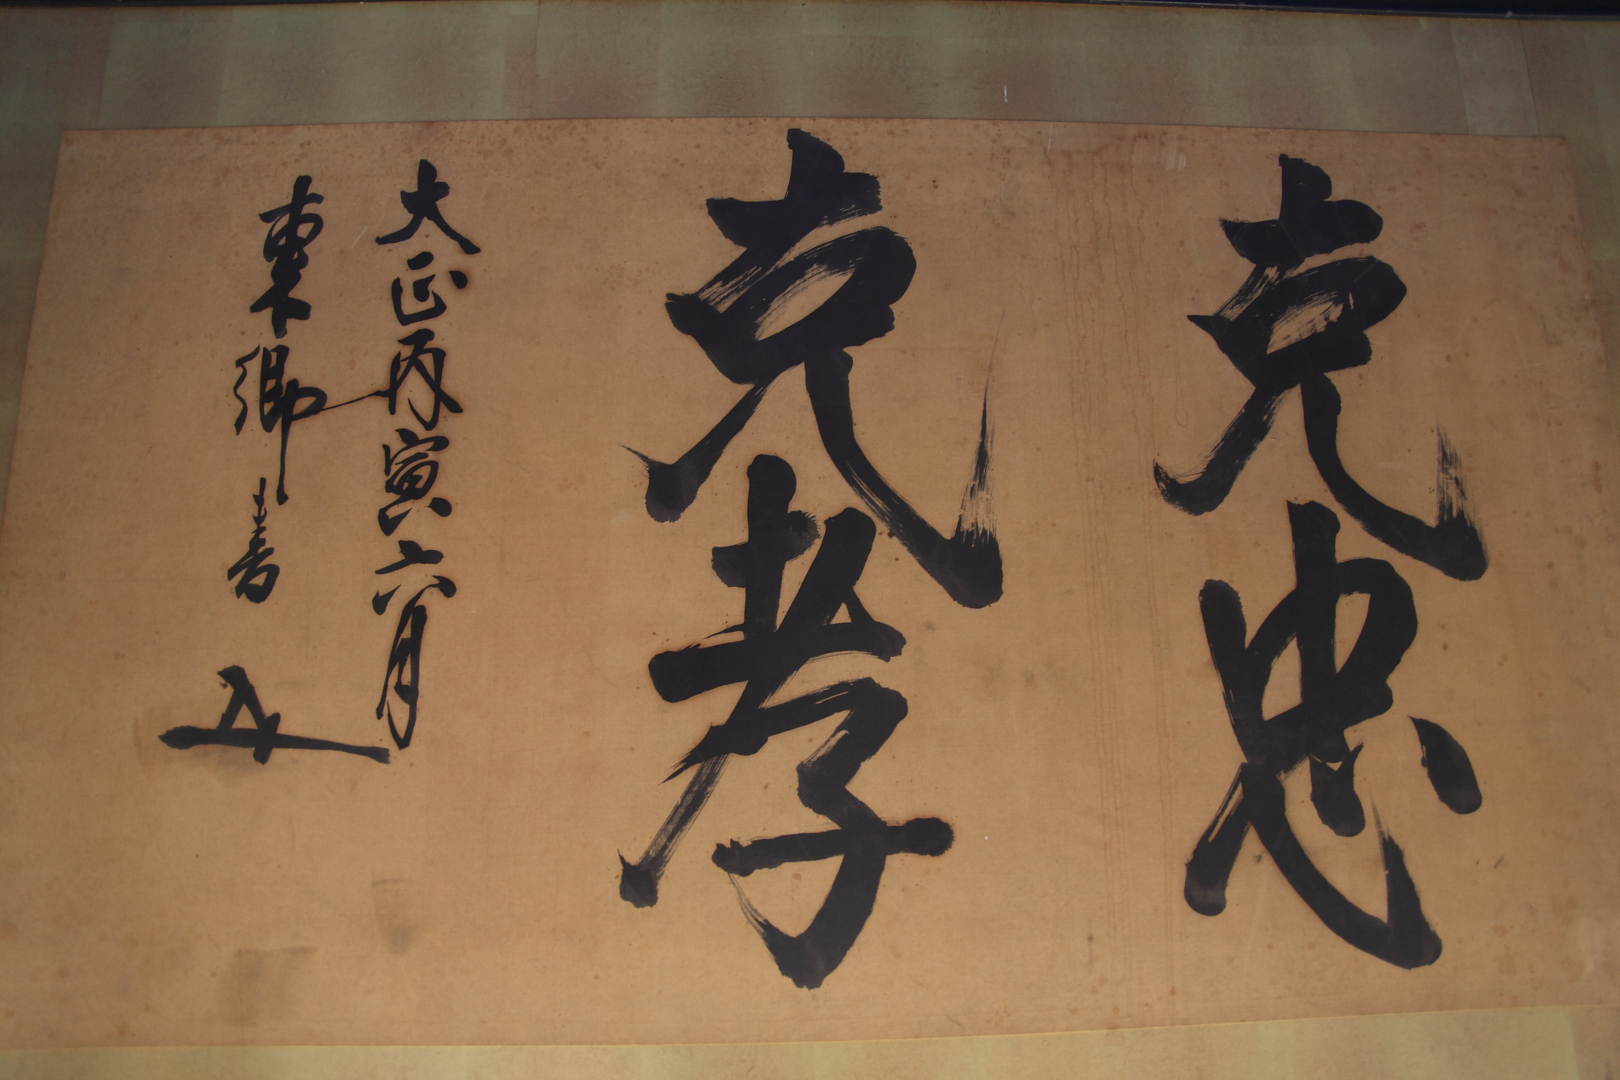 克忠
克孝
大正丙寅六月
東郷書